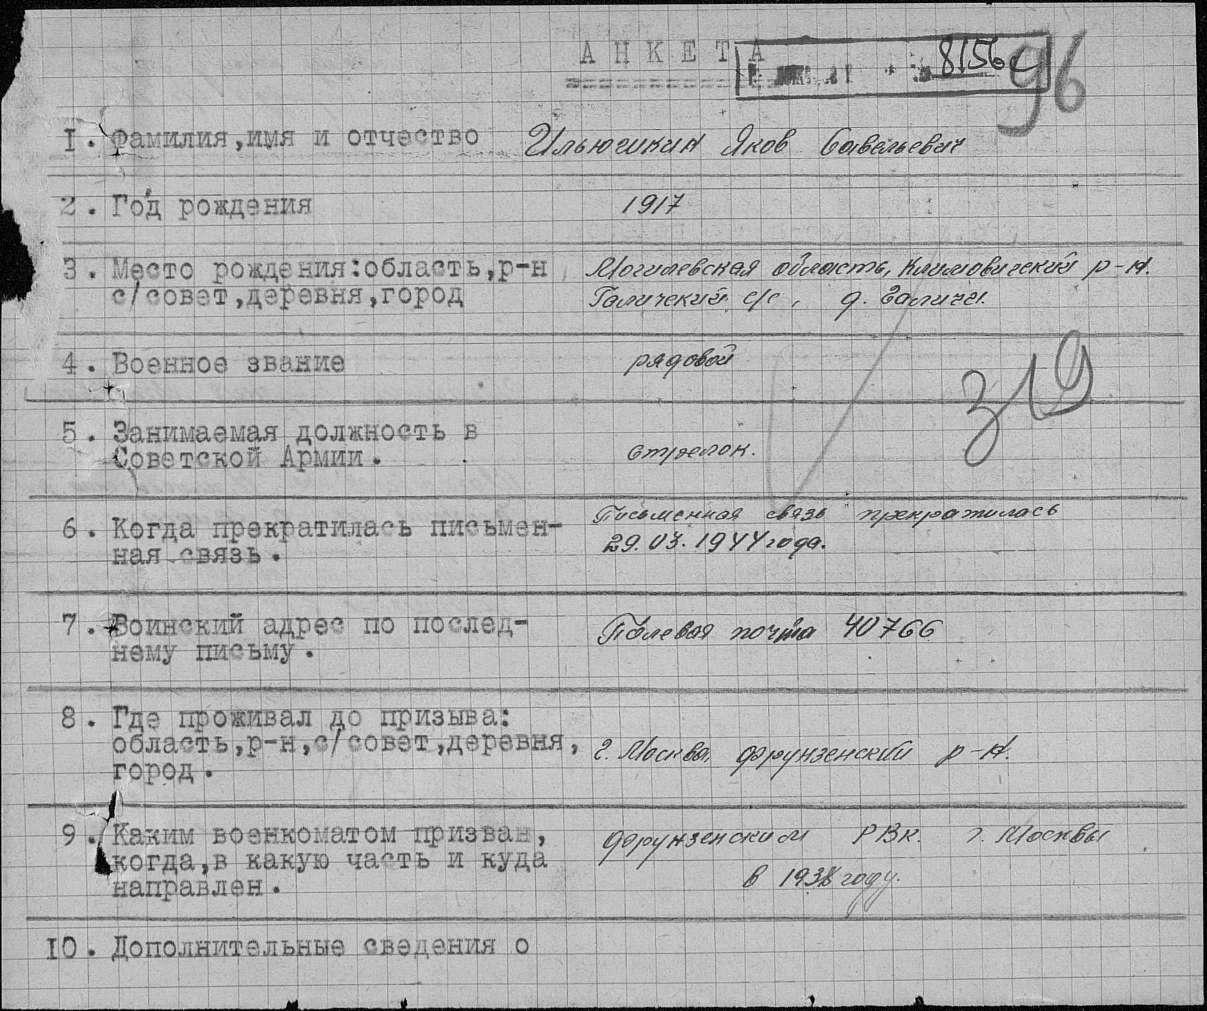 АНКЕТА
8156с
96
1. Фамилия,имя и отчество Ильюшкин Яков Савельевич
2. Год рождения 1917
3. Место рождения:область,р-н Могилевская область, Климовический р-н.
с/совет,деревня,город Галический с/с, д. Галичи.
4. Военное звание рядовой
319
5. Занимаемая должность в
Советской Армии. стрелок.
6. Когда прекратилась письмен- Письменная связь прекратилась
ная связь. 29.03.1944 года.
7. Воинский адрес по послед- Полевая почта 40766
нему письму.
8. Где проживал до призыва:
область,р-н,с/совет,деревня, г. Москва, Фрунзенский р-н.
город.
9. Каким военкоматом призван, Фрунзенским РВК. г. Москвы
когда,в какую часть и куда в 1938 году.
направлен.
10. Дополнительные сведения о